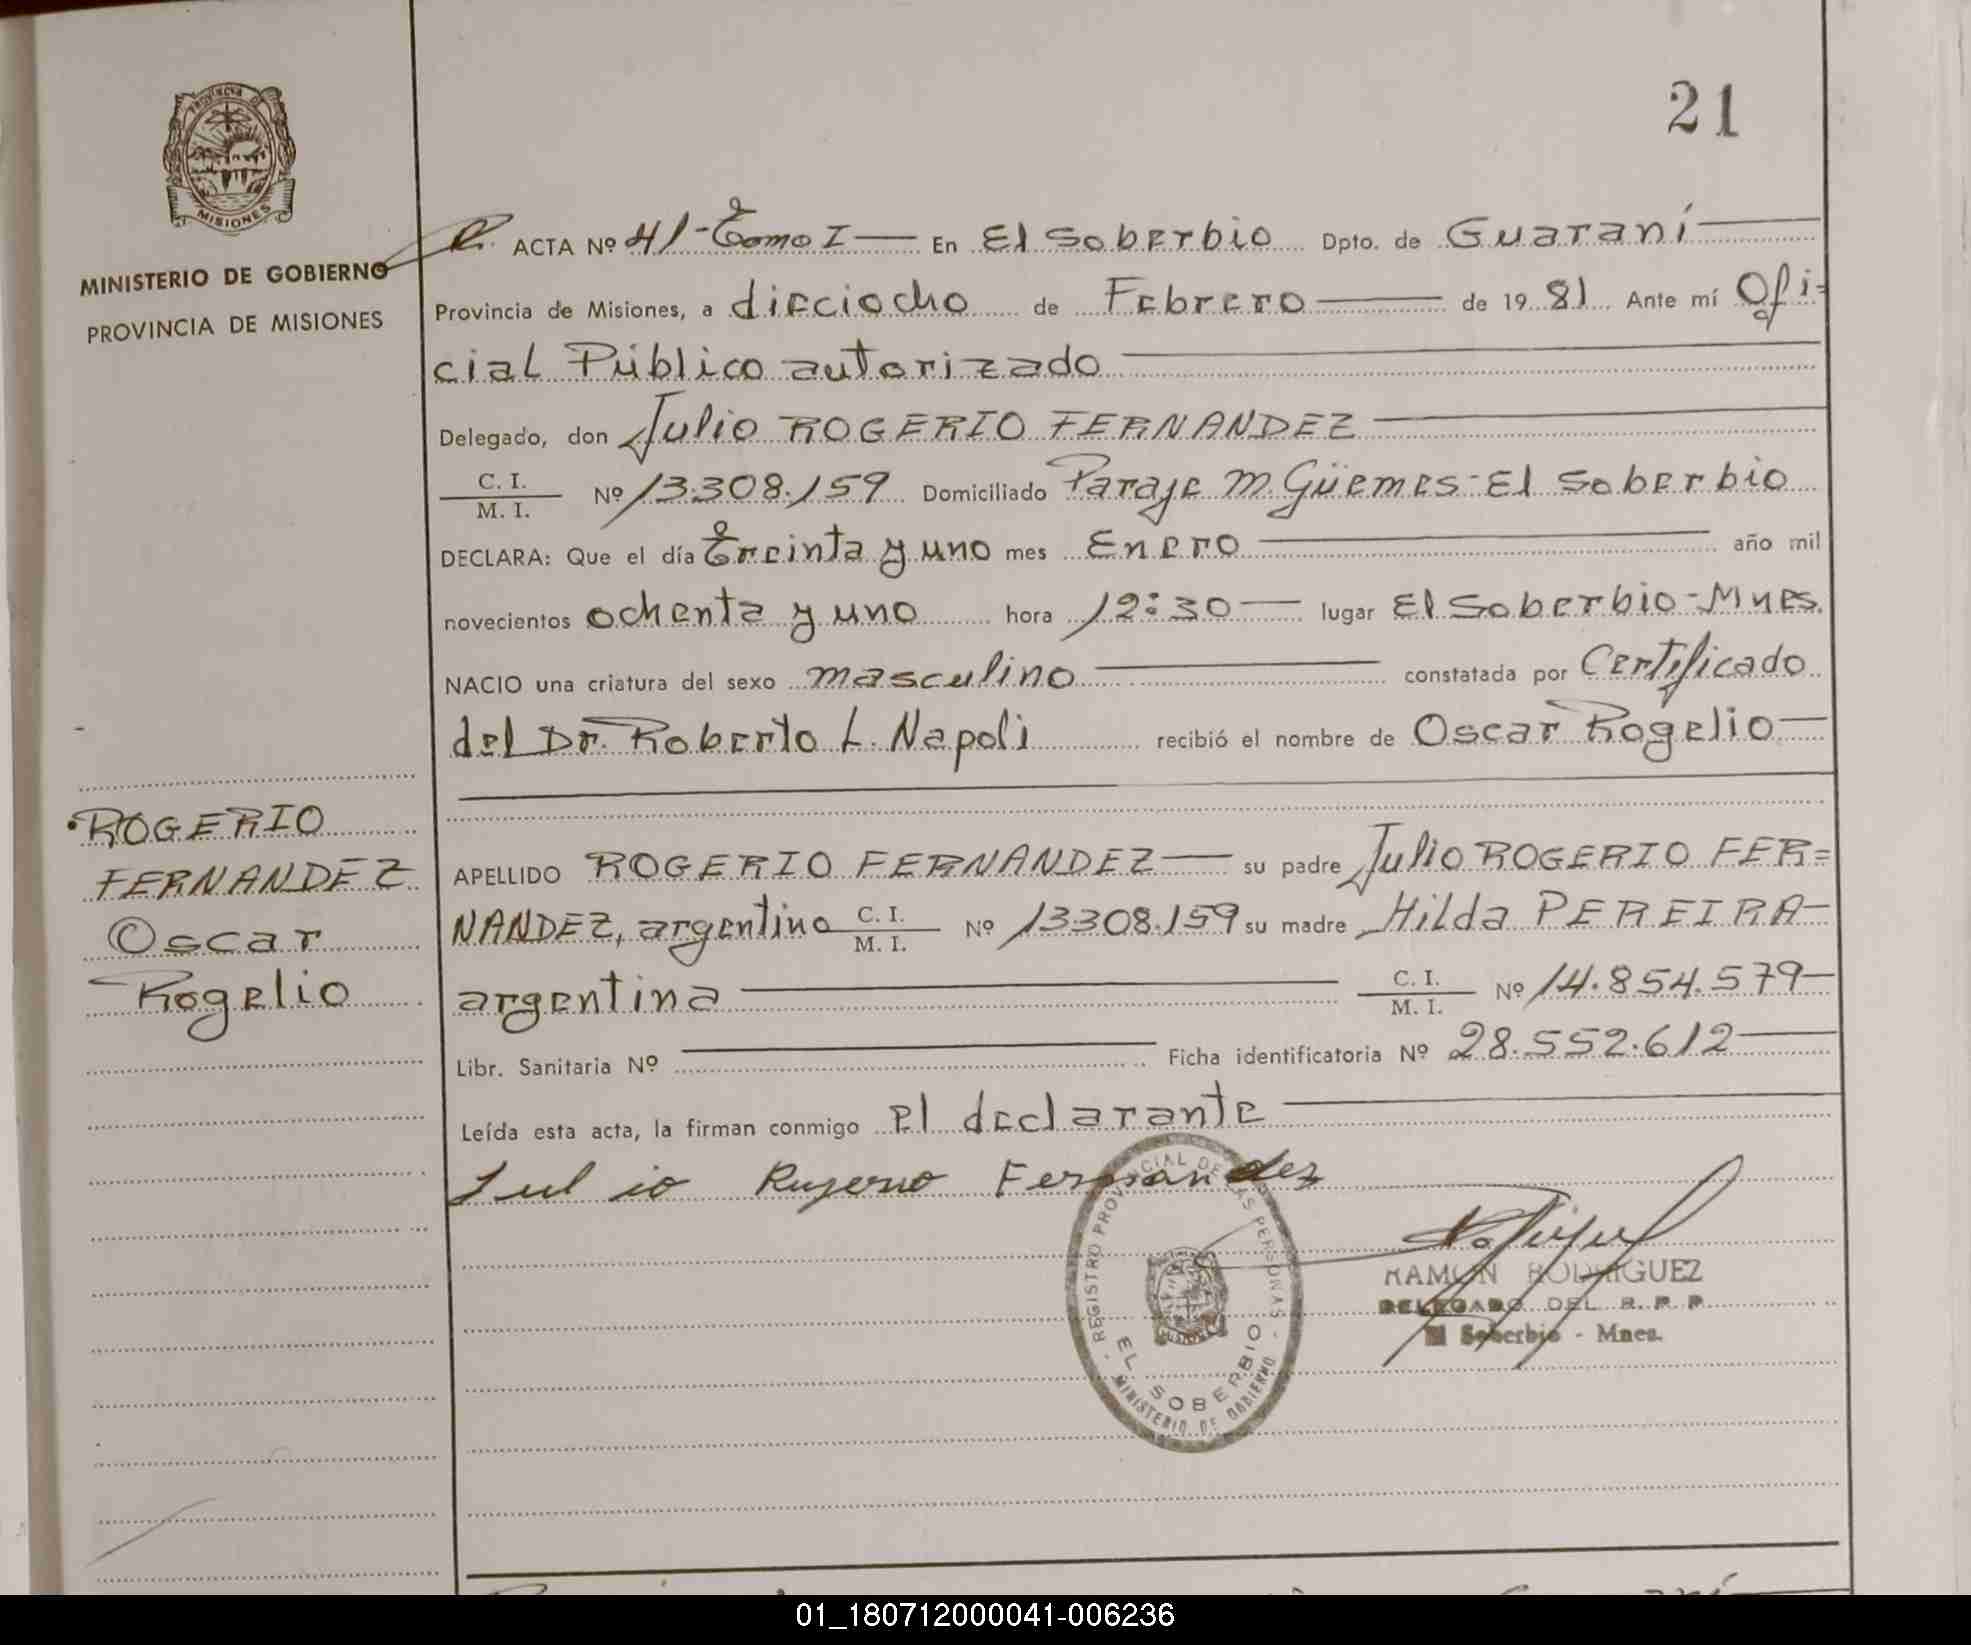 21
PROVINCIA DE
MISIONES
MINISTERIO DE GOBIERNO
PROVINCIA DE MISIONES
ACTA Nº 41-Tomo I — En El Soberbio Dpto. de Guaraní
Provincia de Misiones, a dieciocho de Febrero — de 1981 Ante mí Ofi=
cial Público autorizado
Delegado, don Julio ROGERIO FERNANDEZ
C. I.
M. I. Nº 13.308.159 Domiciliado Paraje M. Güemes-El Soberbio
DECLARA: Que el día Treinta y uno mes Enero — año mil
novecientos ochenta y uno hora 12:30 — lugar El Soberbio-Mnes.
NACIO una criatura del sexo masculino — constatada por Certificado
del Dr. Roberto L. Napoli recibió el nombre de Oscar Rogelio —
ROGERIO
FERNANDEZ
Oscar
Rogelio
APELLIDO ROGERIO FERNANDEZ — su padre Julio ROGERIO FER=
NANDEZ, argentino C. I.
M. I. Nº 13308.159 su madre Hilda PEREIRA —
argentina — C. I.
M. I. Nº 14.854.579 —
Libr. Sanitaria Nº — Ficha identificatoria Nº 28.552.612 —
Leída esta acta, la firman conmigo el declarante —
Julio Fernandez
REGISTRO PROVINCIAL DE LAS PERSONAS
EL SOBERBIO
MINISTERIO DE GOBIERNO
RAMON RODRIGUEZ
DELEGADO DEL R. P. P.
El Soberbio - Mnes.
01_180712000041-006236